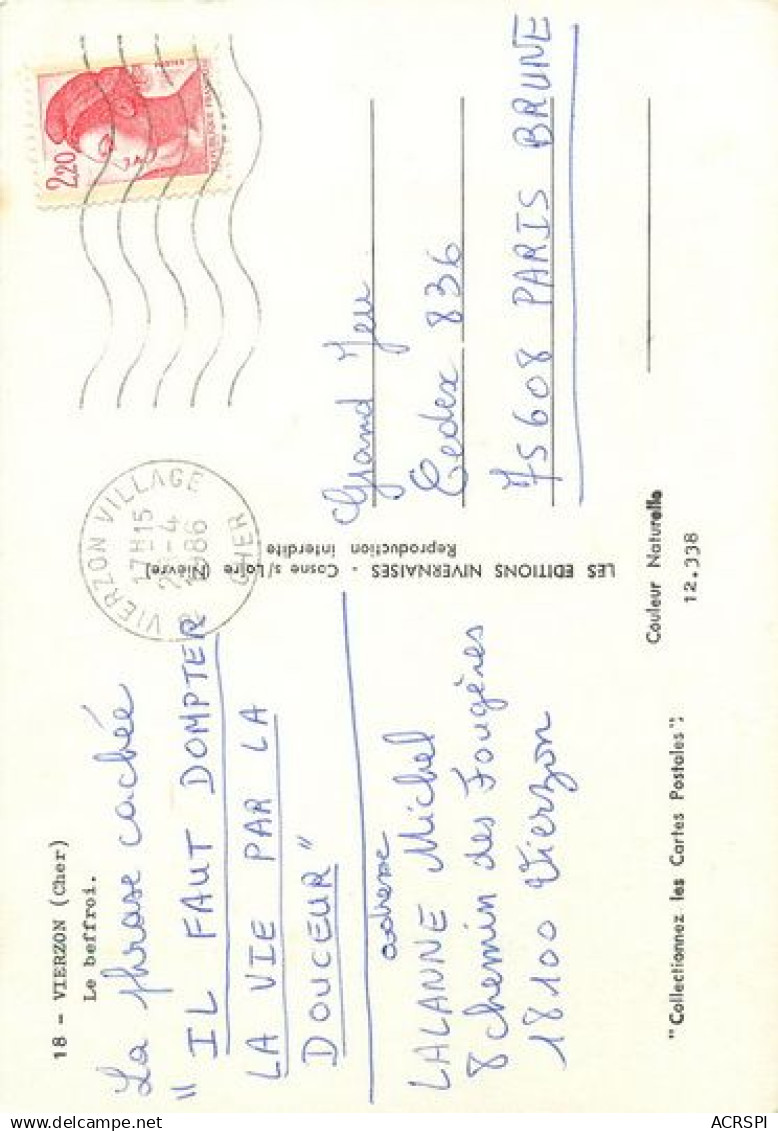 18 - VIERZON (Cher)
Le beffroi.
La phrase cachée
" IL FAUT DOMPTER
LA VIE PAR LA
DOUCEUR"
adresse
LALANNE Michel
8 chemin des Fougères
18100 Vierzon
"Collectionnez les Cartes Postales";
LES EDITIONS NIVERNAISES - Cosne s/Loire (Nièvre)
Reproduction interdite
VIERZON VILLAGE
17H15
-4
1986
CHER
2,20
REPUBLIQUE FRANÇAISE
Grand Jeu
Cedex 836
75608 PARIS BRUNE
Couleur Naturelle
12.338
ACRSPI